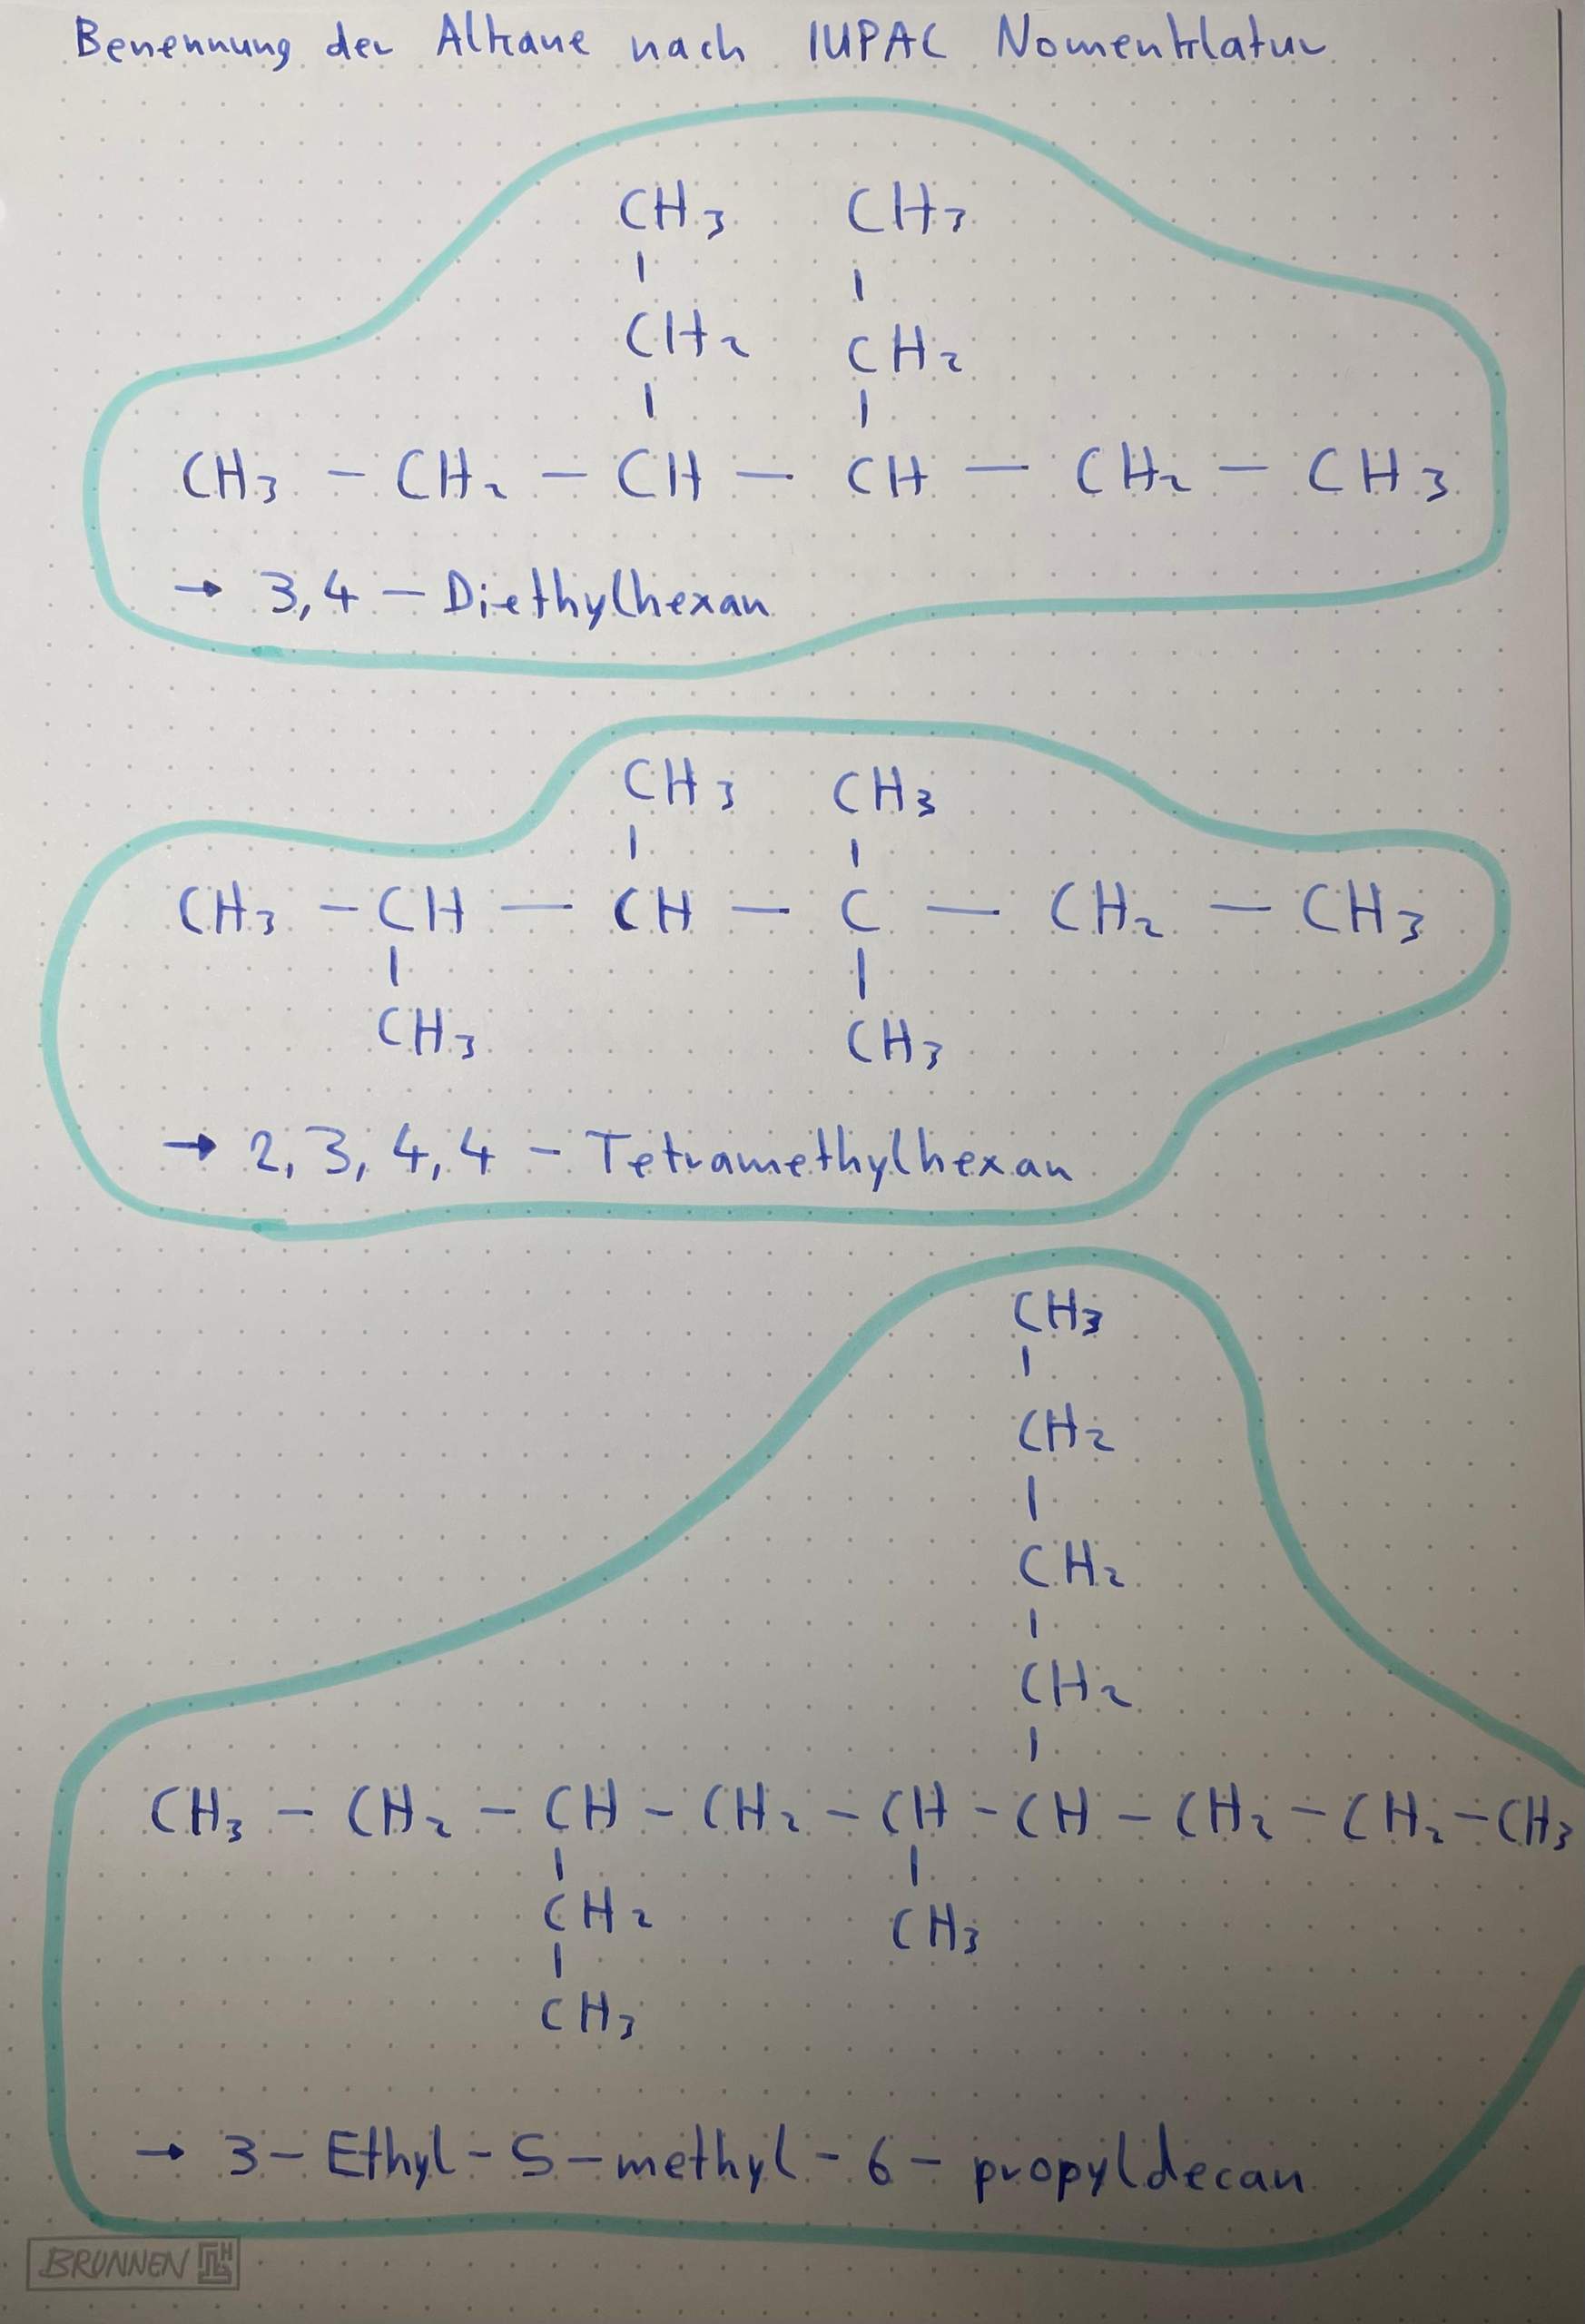 Benennung der Alkane nach IUPAC Nomenklatur
CH3 CH3
| |
CH2 CH2
| |
CH3 - CH2 - CH - CH - CH2 - CH3
→ 3,4 - Diethylhexan
CH3 CH3
| |
CH3 - CH - CH - C - CH2 - CH3
| |
CH3 CH3
→ 2, 3, 4, 4 - Tetramethylhexan
CH3
|
CH2
|
CH2
|
CH2
|
CH3 - CH2 - CH - CH2 - CH - CH - CH2 - CH2 - CH3
| |
CH2 CH3
|
CH3
→ 3 - Ethyl - 5 - methyl - 6 - propyldecan
BRUNNEN